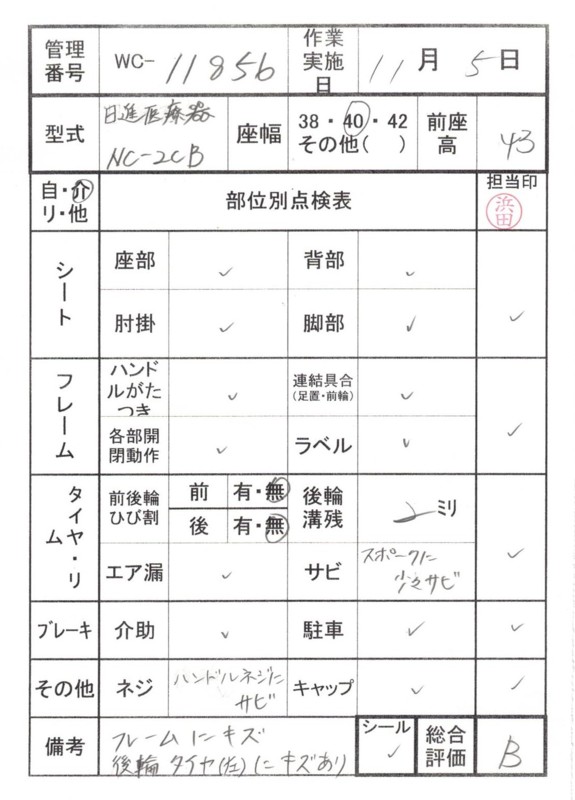 管理番号 WC- 11856 作業実施日 11月5日
型式 日進医療器 NC-2CB 座幅 38・40・42 その他( ) 前座高 43
自・介リ・他 部位別点検表 担当印 浜田
シート 座部 ✓ 背部 ✓
肘掛 ✓ 脚部 ✓ ✓
フレーム ハンドルがたつき ✓ 連結具合(足置・前輪) ✓
各部開閉動作 ✓ ラベル ✓ ✓
タイヤ・リム 前後輪ひび割 前 有・無 後輪溝残 2ミリ
後 有・無
エア漏 ✓ サビ スポークに少々サビ ✓
ブレーキ 介助 ✓ 駐車 ✓ ✓
その他 ネジ ハンドルネジにサビ キャップ ✓ ✓
備考 フレームにキズ シール ✓ 総合評価 B
後輪タイヤ(左)にキズあり